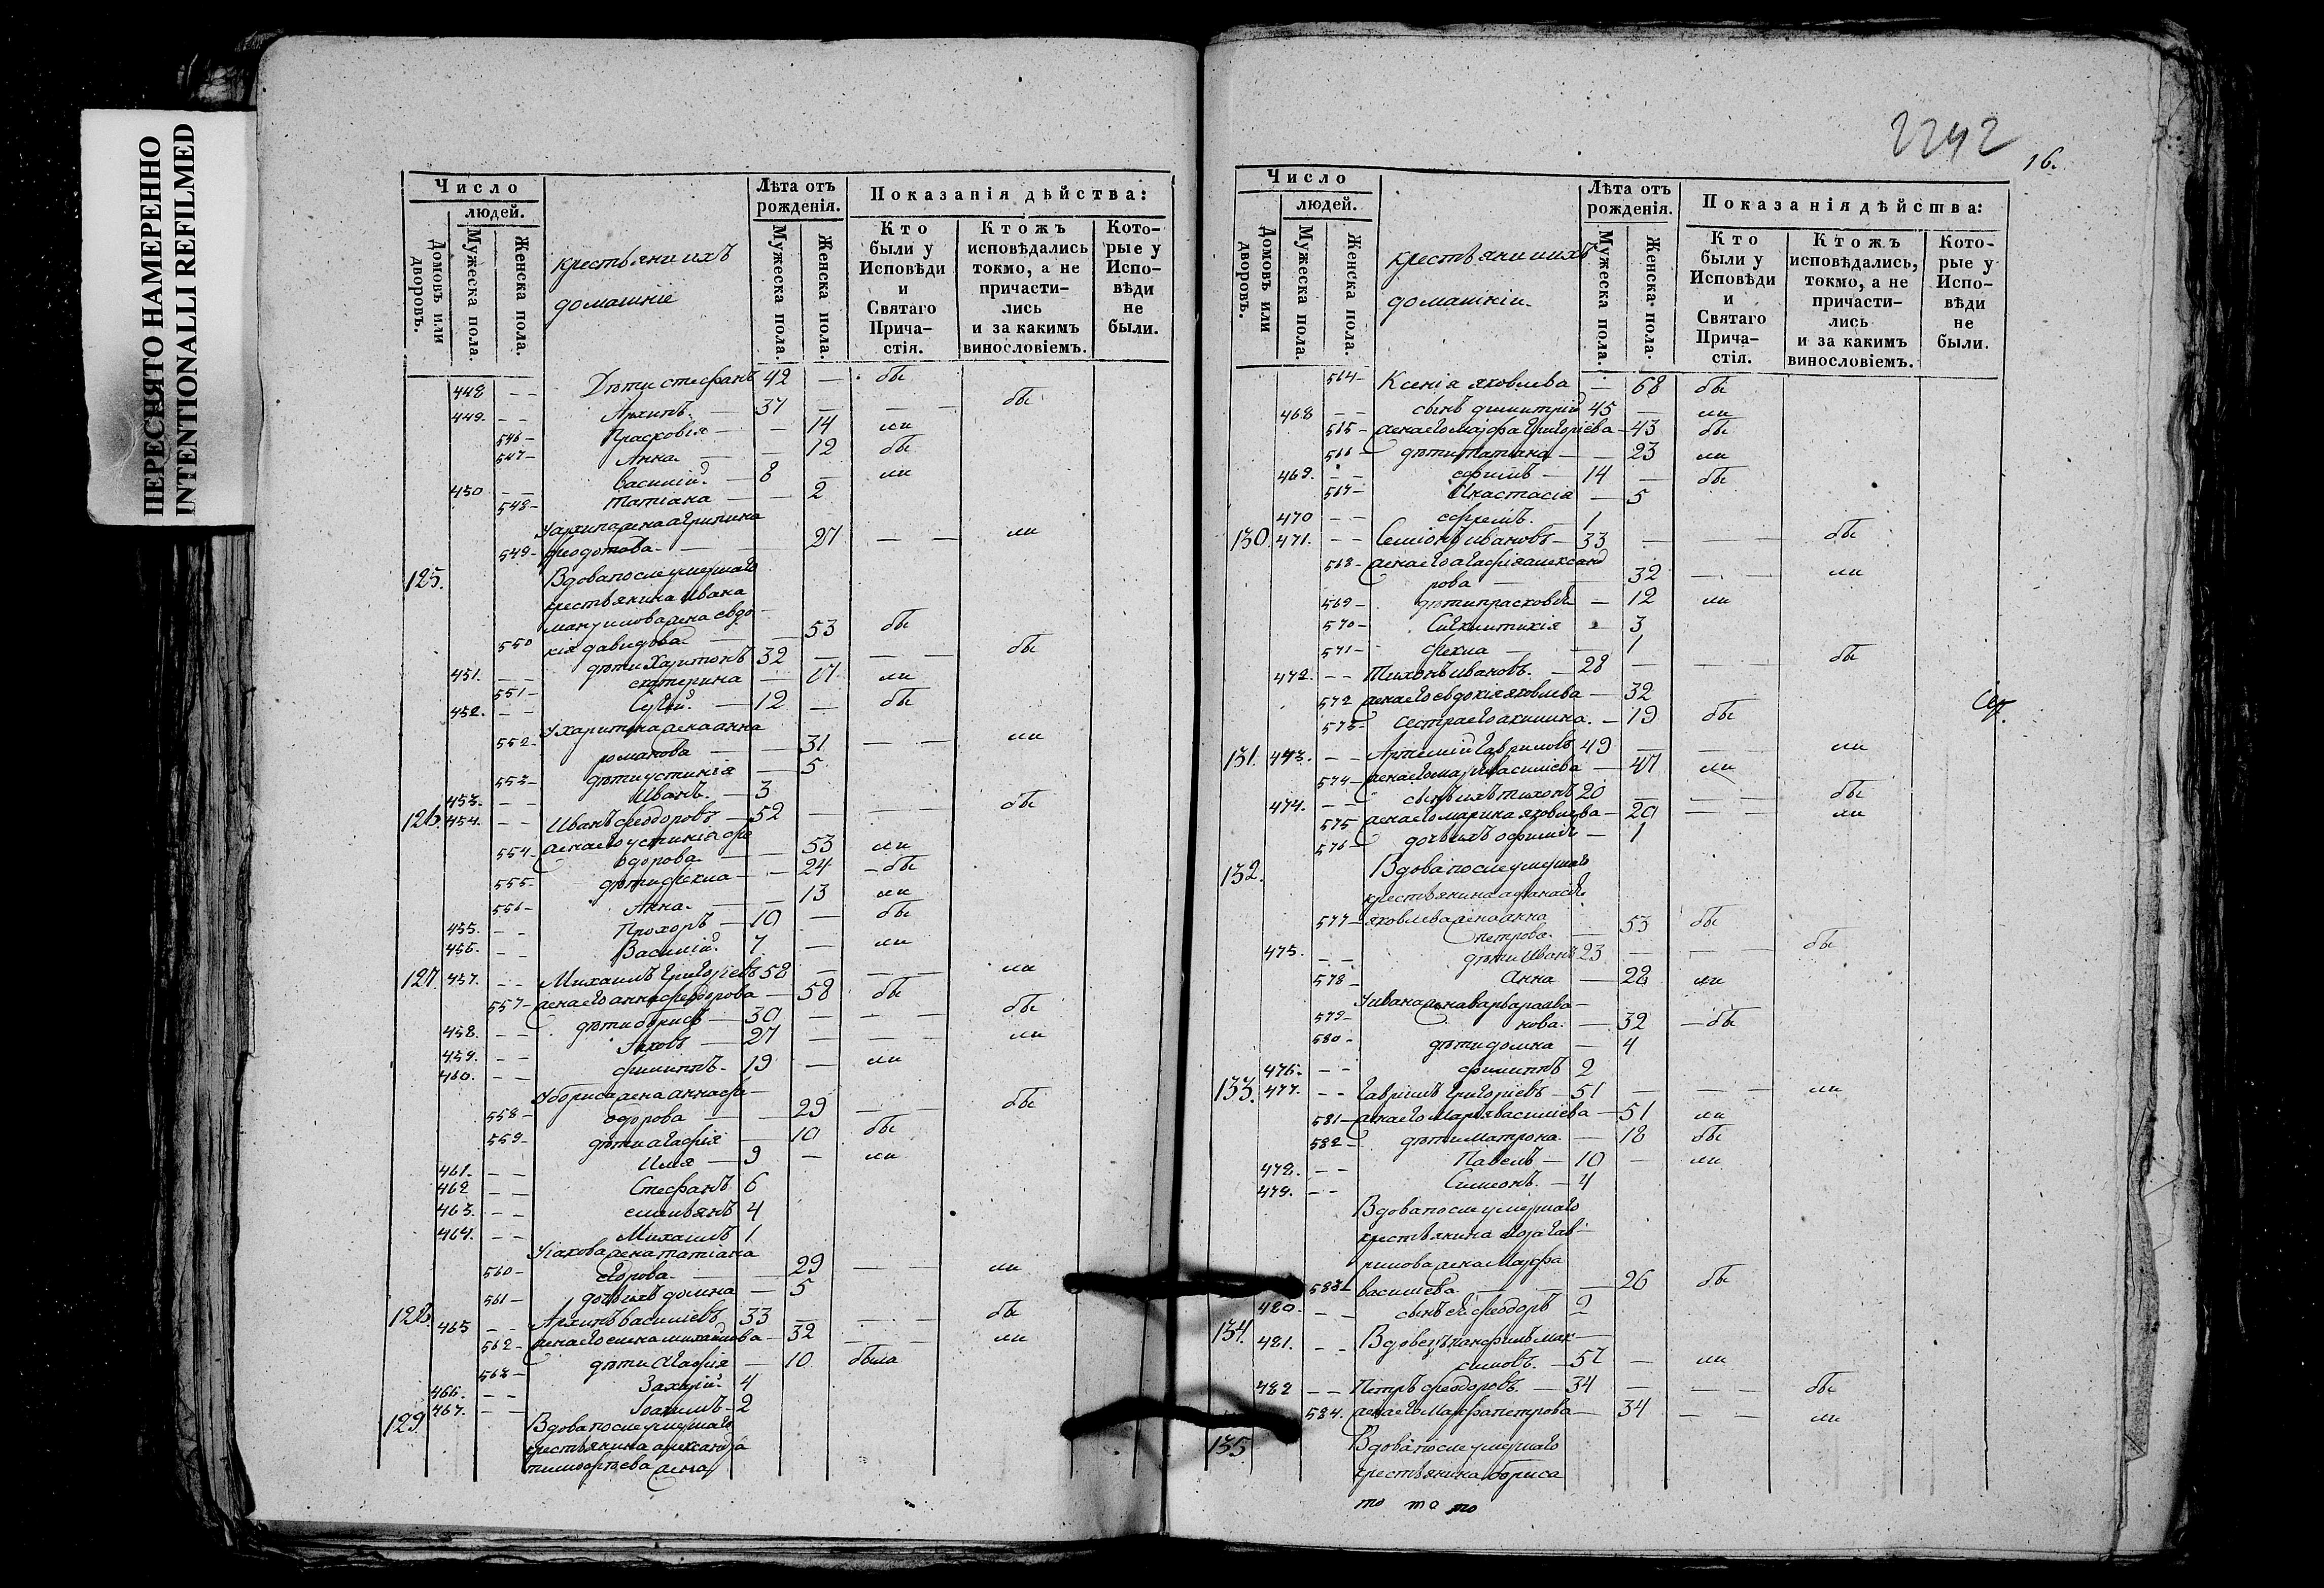 ПЕРЕСНЯТО НАМЕРЕННО
INTENTIONALLI REFILMED
Число
людей.
Домовъ или дворовъ.
Мужеска пола.
Женска пола.
крестьяни ихъ
домашніе
Лѣта отъ рожденія.
Мужеска пола.
Женска пола.
Показанія дѣйства:
Кто были у Исповѣди и Святаго Причастія.
Ктожъ исповѣдались токмо, а не причастились и за какимъ винословіемъ.
Которые у Исповѣди не были.
448 – – Дѣти стефанъ 42 — бы
449. – – Архипъ. — 37 — — — бы
546 – Прасковія — — 14 ли
547 – Анна. — — 12 бы
450 – – василій. — 8 — ли
548 – татіана — — 2
Уархипа жена агрипина
549 – феодотова — — 27 — — ли
125. Вдова после умершаго
крестьянина ивана
мануилова жена евдо–
550 кія давидова — — 53 бы
451. – – дѣти Харитонъ 32 — — — бы
551 – екатерина — 17 ли
452. – – Сергій. — 12 — бы
Ухаритона жена анна
552 – романова — — 31 — — ли
553 – дѣти устинія — 5
453. – – Иванъ. — 3
126. 454. – – Иванъ феодоровъ — 52 — — — бы
жена его устинія фе
554 – одорова — — 53 ли
555 – дѣти фекла — — 24 – бы
556 – Анна. — — 13 ли
455. – – Прохоръ — 10 — бы
456. – – Василій. 7 — ли
127. 457. – – Михаилъ григорьевъ 58 — — — ли
557 – жена его анна феодорова — 58 бы
458. – – дѣти борисъ — 30 — — — бы
459. – – Іаковъ — 27 — — — ли
460. – – филиппъ – 19 — ли
Убориса жена анна фе —
558 – одорова — — 29 — — бы
559 – дѣти агафія — 10 бы
461. – – Илія — 9 — ли
462 – – Стефанъ 6
463. – – емельянъ 4
464. – – Михаилъ 1
Уіакова жена татіана
560 – егорова — — 29 — — ли
561 – дочь ихъ домна — 5
128. 465 – – Архипъ василіевъ 33 — — — бы
562 – жена его елена михайлова — 32 — — ли
563 – дѣти Агафія — 10 была
466. – – Захарій. 4
467. – – Іоакимъ – 2
129. Вдова после умершаго
крестьянина александра
тимофѣева жена
2242
16.
Число
людей.
Домовъ или дворовъ.
Мужеска пола.
Женска пола.
крестьяни ихъ
домашніи
Лѣта отъ рожденія.
Мужеска пола.
Женска пола.
Показанія дѣйства:
Кто были у Исповѣди и Святаго Причастія.
Ктожъ исповѣдались, токмо, а не причастились и за какимъ винословіемъ.
Которые у Исповѣди не были.
564 – Ксенія яковлева — 68 бы
468 – – сынъ димитрій 45 — ли
565 – жена его марфа григоріева — 43 бы
566 – дѣти татіана — – 23 ли
469. – – ефимъ — 14 — бы
567 – Анастасія — 5
470 – – ефремъ. 1
130. 471. – – Семіонъ ивановъ — 33 — — бы
568 – жена его агафія александ
рова — — 32 — — ли
569 – дѣти прасковія — 12 ли
570 – Сигклитикія 3
571 – фекла — — 1
472. – – Тихонъ ивановъ. — 28 — — — бы
572 жена его евдокія яковлева — 32
573 – сестра его акилина. — 19 бы
131. 473. – – Артемій гавриловъ 49 — — — ли
574 – жена его марія василіева — 47 ли
474. – – сынъ ихъ тихонъ 20 — — — бы
575 жена его марина яковлева — 20 — — ли
576 – дочь ихъ офимія — 1
132. Вдова после умершаго
крестьянина афанасія
577 – яковлева жена анна
петрова. — 53 бы
475. – – дѣти иванъ 23 — — — бы
578 – Анна — 28 ли
Уивана жена варвара ива —
579 – нова. — 32 — бы
580 – дѣти домна — 4
476. – – филиппъ 2
133. 477. – – гаврилъ григоріевъ — 51 — — — ли
581 – жена его марія василіева — 51 ли
582 – дѣти матрона. — 18 бы
478. – – Павелъ — 10 — ли
479. – – Симеонъ. — 4
Вдова после умершаго
крестьянина егора гав–
рилова жена Марфа
583 василіева. — — 26 бы
480 – – сынъ ея феодоръ 2
134. 481. – – Вдовецъ панфилъ мак —
симовъ. — 57 — ли
482 – – Петръ феодоровъ. — 34 — — — бы
584. жена его Марфа петрова — 34 — — ли
135. Вдова после умершаго
крестьянина бориса
то то то